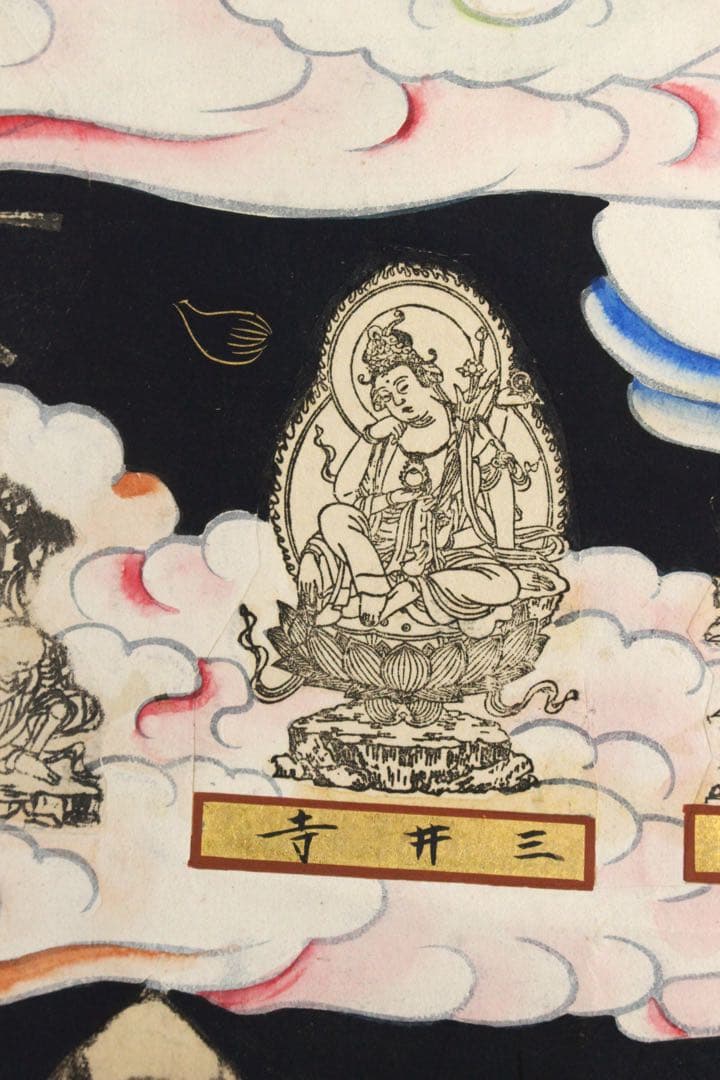 三井寺